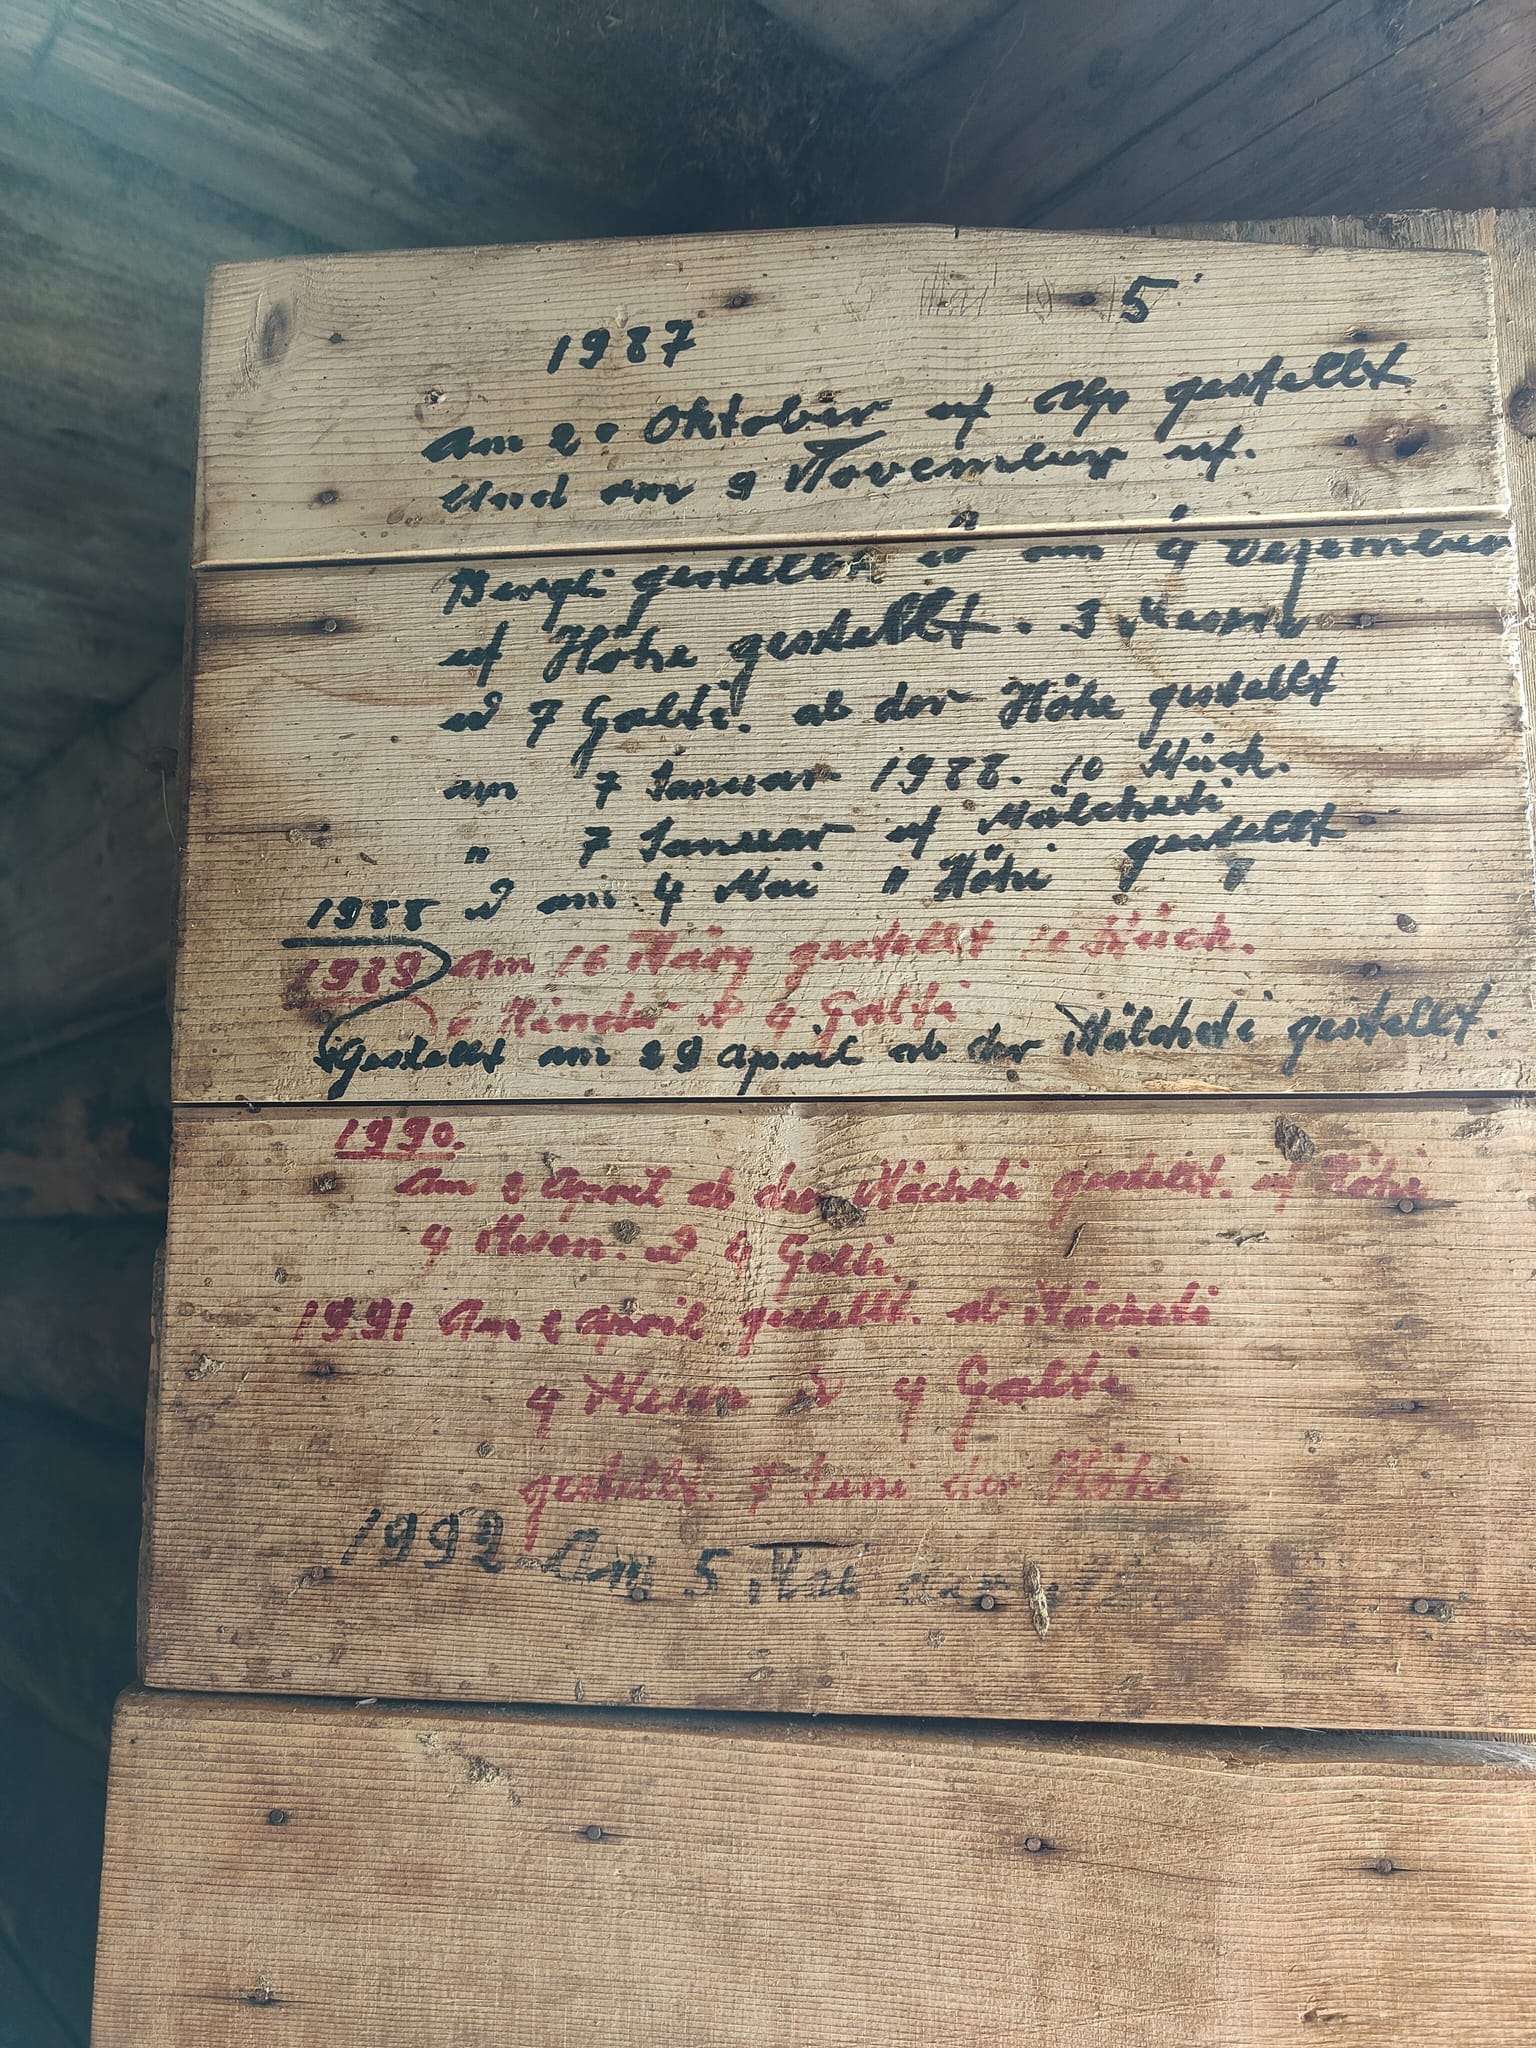 Mai 19 5
1987
Am 20 Oktober uf Alp gestellt
Und am 9 November uf.
Bergli gestellt u am 9 Dezember
uf Höhe gestellt. 3 Mesen
u 7 Galti. ab der Höhe gestellt
am 7 Januar 1988. 10 Stück.
" 7 Januar uf Mälcheti
1988 u am 4 Mai " Höhi gestellt
1989 Am 16 März gestellt 10 Stück.
6 Rinder u 4 Galti
Gestellt am 29 April ab der Mälcheti gestellt.
1990.
Am 2 April ab der Mächeti gestellt. uf Höhi
4 Mesen. u 4 Galti.
1991 Am 2 April gestellt. ab Mächeti
4 Mesen u 4 Galti
gestellt. 7 Juni der Höhi
1992 Am 5 Mai